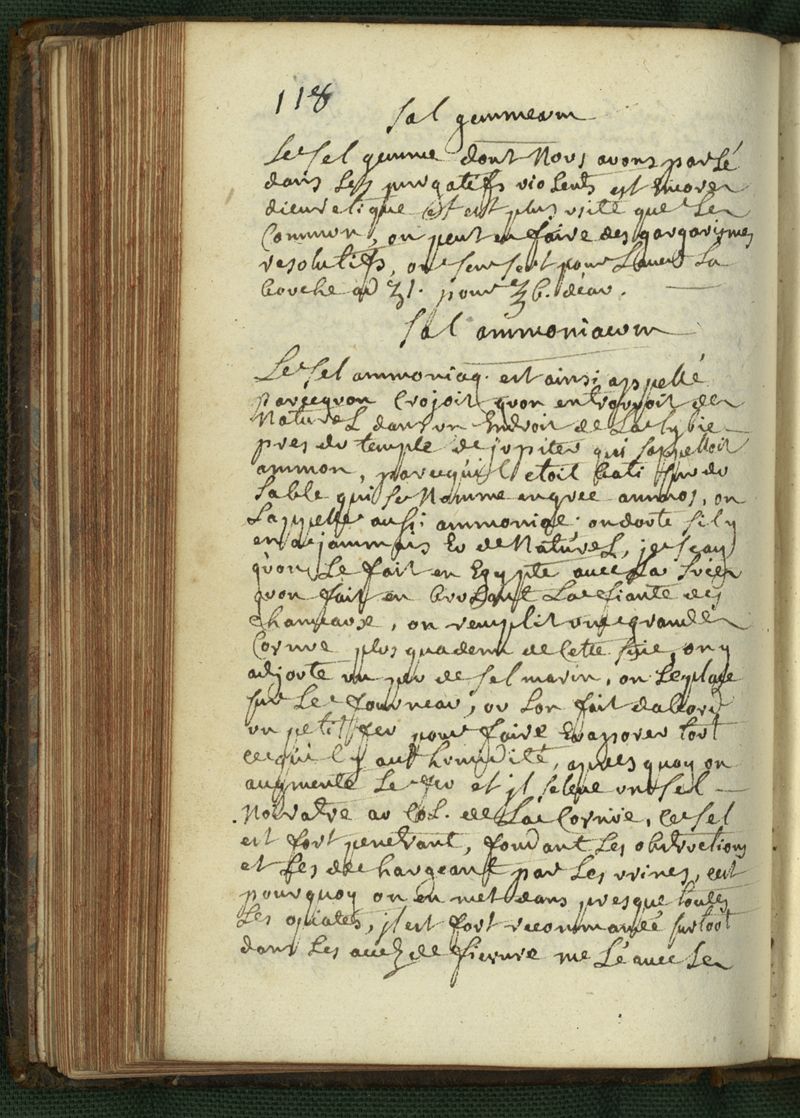 118
Sal gemmeum
Le Sel gemme dont Nous avons parlé
dans Les purgatifs violents est Encore
diuretique et est plus usité que Le
Commun, on peut en faire des gargarismes
resolutifs, on sen sert pour Laver La
bouche ad ʒ1. pour ℥6. deau.
Sal ammoniacum
Le Sel ammoniaq. est ainsi appellé
parcequon Croyoit quon entrouvoit de
Naturel dans un Endroit de La lybie
pres du temple de jupiter qui sappelloit
ammon, parcequil etoit bati sur du
Sable qui se Nomme en grec ammos, on
Lappelle aussi ammoniac. on doute sil y
en a jammais Eu de Naturel, je sçay
quon Le fait en Egypte avec La Suie
quon fait en brulant La fiante des
chameaux, on remplit une grande
Cornue plus quademi de Cette Suie, on y
adjoute un peu de Sel marin, on Le place
sur Le fourneau, ou Lon fait dabord
un petit feu pour faire Evaporer tout
ce quil y a dhumidité, apres quoy on
augmente Le feu et jl seleve un Sel
Noiratre au Col. de La Cornue, Ce Sel
est fort penetrant, fondant Les obstructions
et Les dechargeant par Les urines, cest
pourquoy on en met dans presque toutes
Les opiates, jl est fort recommandé surtout
dans Les accez de fievre melé avec Le